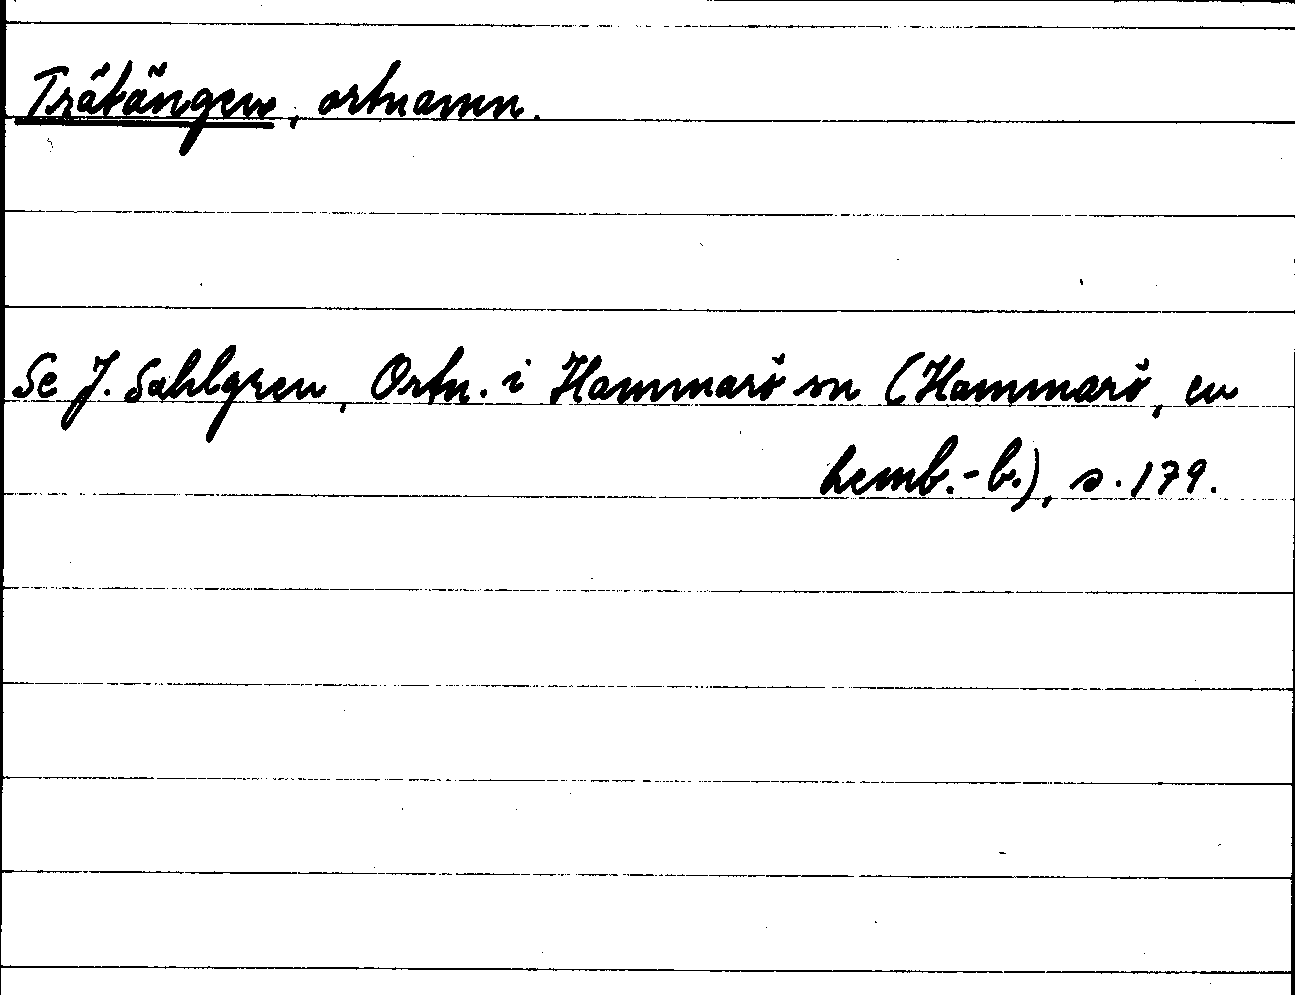 Trätängen, ortnamn.
Se J. Sahlgren, Ortn. i Hammarö sn (Hammarö, en
hemb.-b.), s. 179.